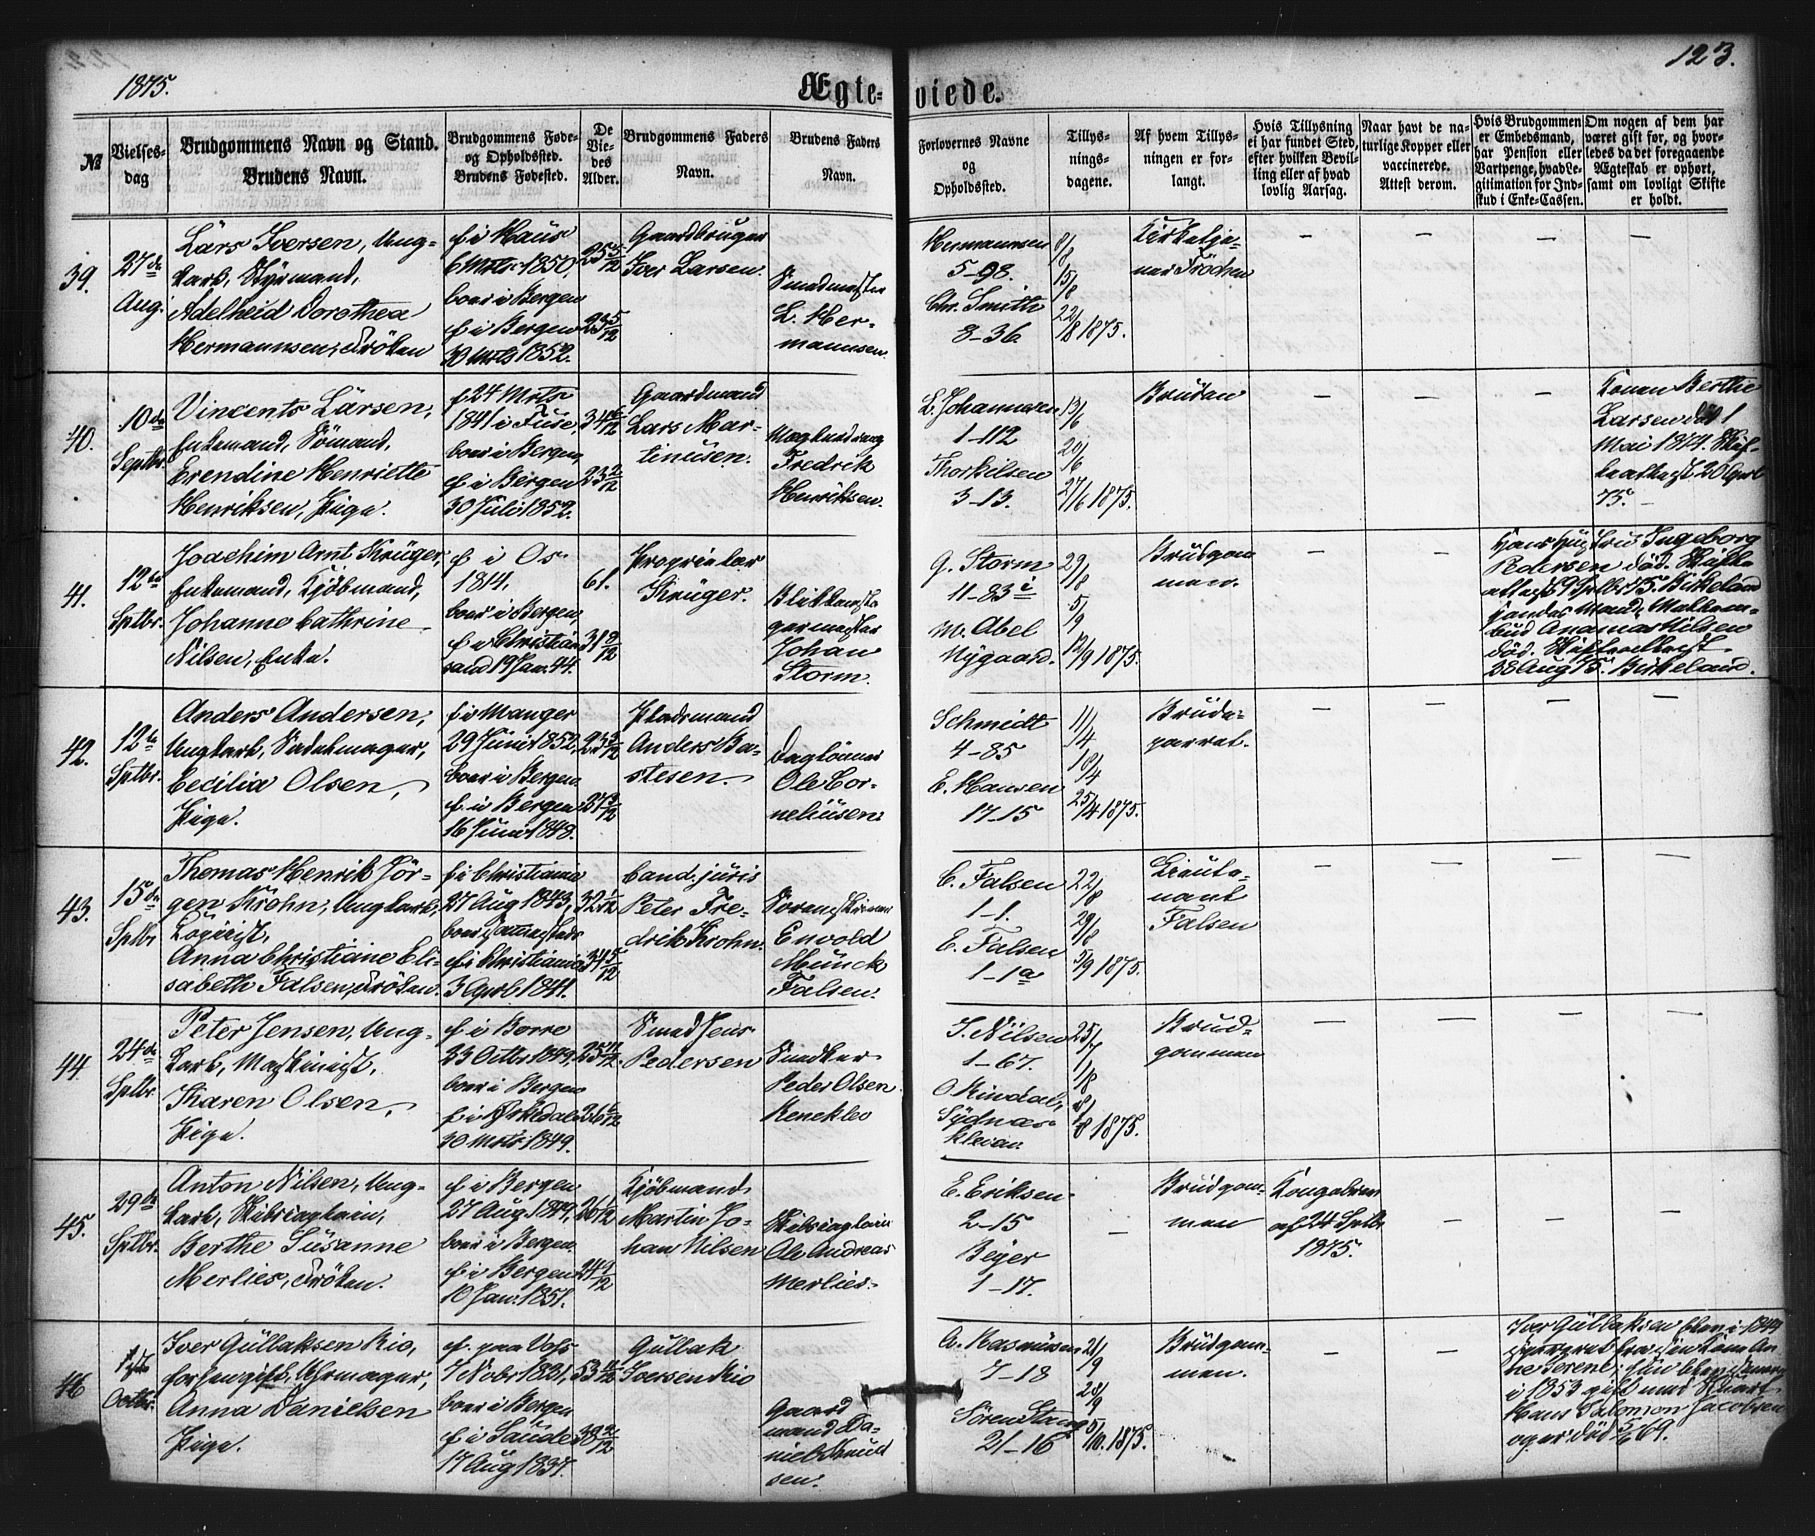 1875.
Ægte-
viede.
123.
№
Vielses-
dag
Brudgommens Navn og Stand.
Brudens Navn.
Brudgommens Føde-
og Opholdssted.
Brudens Fødested.
De
Vie-
des
Alder.
Brudgommens Faders
Navn.
Brudens Faders
Navn.
Forlovernes Navne
og
Opholdssted.
Tillys-
nings-
dagene.
Af hvem Tillys-
ningen er for-
langt.
Hvis Tillysning
ei har fundet Sted,
efter hvilken Bevil-
ling eller af hvad
lovlig Aarsag.
Naar havt de na-
turlige Kopper eller
vaccinerede.
Attest derom.
Hvis Brudgommen
er Embedsmand,
har Pension eller
Vartpenge, hvad Le-
gitimation for Ind-
skud i Enke-Cassen.
Om nogen af dem har
været gift før, og hvor-
ledes da det foregaaende
Ægteskab er ophørt,
samt om lovligt Skifte
er holdt.
39.
27de
Aug.
Lars Iversen, Ung-
karl, Styrmand,
Adelheid Dorothea
Hermannsen, Fröken
f i Haus
6 Mrts 1850,
boer i Bergen
f i Bergen
30 Mrts 1852.
25 5/12
23 5/12
Gaardbruger
Iver Larsen.
Smedmester
L. Her-
mannsen.
Hermannsen
5-98.
Chr. Smith
8-36
8/8
15/8
22/8 1875.
Kirketje-
ner Fröchen
40.
10de
Septbr.
Vincents Larsen,
Enkemand, Sömand,
Erendine Henriette
Henriksen, Pige.
f 24 Mrts
1841 i Fuse,
boer i Bergen,
f i Bergen
30 Juli 1852.
34 6/12
23 2/12
Gaardmand
Lars Mar-
tinusen.
Fredrik
Henriksen.
L. Johannesen
1-112
Thorkilsen
3-13.
13/6
20/6
27/6 1875.
Bruden
Konen Berthe
Larsen död 1
Mai 1874. Skif-
teattest 20 April
75.
41.
12te
Sptbr.
Joachim Arnt Krüger,
Enkemand, Kjöbmand,
Johanne Cathrine
Nilsen, Enke.
f i Os
1814.
boer i Bergen,
f i Christian
sand 19 Jan. 44.
61.
31 8/12
Proprietær
Krüger.
Johan
Storm.
G. Storm
11-83 i
M. Abel
Nygaard.
29/8
5/9
12/9 1875.
Brudgom
men.
Hans Hustru Ingeborg
Pedersen död. Skifte
attest 9 Sptbr 75. Birkeland
Hendes Mand,
bud Ananias Nilsen
död. Skifteattest
28 Aug 75. Birkeland.
42.
12te
Sptbr.
Anders Andersen,
Ungkarl, Sadelmager,
Cecilia Olsen,
Pige.
f i Manger
29 Juni 1852,
boer i Bergen.
f i Bergen
16 Juni 1848.
23 3/12
27 3/12
Pladsmand
Anders Ba-
stesen.
Daglönner
Ole Cor-
neliusen.
Schmidt
4-85
E. Hansen
17-15
11/4
18/4
25/4 1875.
Brude-
parret.
43.
15de
Sptbr
Thomas Henrik Jör-
gen Krohn, Ungkarl,
Logerist,
Anna Christiane Eli-
sabeth Falsen, Fröken.
f i Christiania
27 Aug 1843,
f i Christiania
3 April 1841.
32 1/12
34 5/12
Cand. juris
Peter Fre-
drik Krohn.
Sorenskriver
Envold
Munck
Falsen.
C. Falsen
1-1.
E. Falsen
1-1a
22/8
29/8
5/9 1875.
Lieute-
nant
Falsen
44.
24de
Sptbr.
Peter Jensen, Ung-
karl, Maskinist,
Karen Olsen,
Pige.
f i Borre
23 Octbr 1849,
boer i Bergen
f i Örkedal
30 Mrts 1849.
25 11/12
26 6/12
Smed Jens
Pedersen
Snedker
Peder Olsen
J. Nilsen
1-67.
O Rindal,
Sydnæs-
kleiva.
25/7
1/8
8/8 1875.
Brud-
gommen
45.
29de
Sptbr.
Anton Nilsen, Ung-
karl, Skibscaptain,
Berthe Susanne
Merlies, Fröken.
f i Bergen
27 Aug 1849,
boer i Bergen.
f i Bergen
10 Jan. 1851.
26 1/12
24 9/12
Kjöbmand
Martin Jo-
han Nilsen
Skibscaptain
Ole Andreas
Merlies.
E. Eriksen
2-15
Beyer
1-17.
Brudgom-
men
Kongebrev
af 24 Sptbr
1875.
46
1ste
Octbr.
Iver Gullaksen Rio,
forhen gift, Uhrmager,
Anna Danielsen
Pige.
f. paa Voss
7 Novbr 1821,
boer i Bergen
f i Saude
17 Aug 1837.
53 11/12
38 2/12
Gullak
Iversen Rio
Gaard
mand Da-
niel Knud
sen.
A. Rasmussen
7-18
Sören Stang
21-16
21/9
28/9
5/10. 1875.
Brudgom-
men.
Iver Gullaksen blev i 1849
separeret fra sin Kone An-
ne Serene; hun blev
i 1853 gift med
Hans Salomon Jacobsen
og er död 5/6 69.